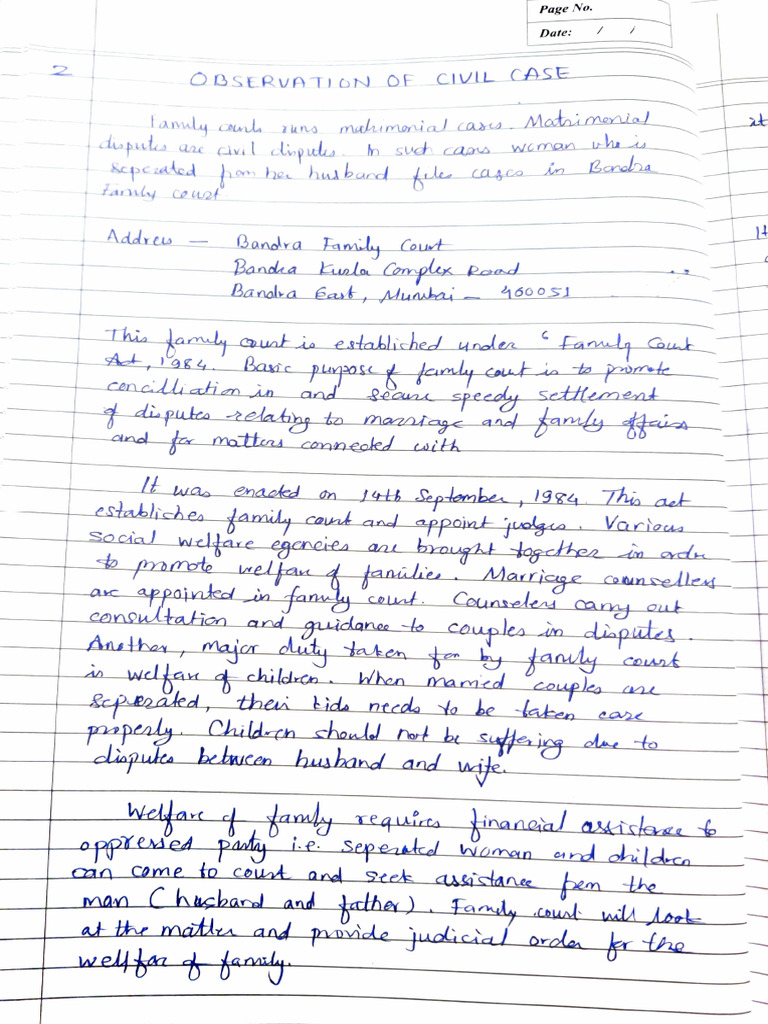 Page No.
Date: / /
2
OBSERVATION OF CIVIL CASE
Family courts runs matrimonial cases. Matrimonial
disputes are civil disputes. In such cases woman who is
seperated from her husband files cases in Bandra
family court
Address — Bandra Family Court
Bandra Kurla Complex Road
Bandra East, Mumbai - 400051
This family court is established under " Family Court
Act, 1984. Basic purpose of family court is to promote
concilliation in and secure speedy settlement
of disputes relating to marriage and family affairs
and for matters connected with
It was enacted on 14th September, 1984. This act
establishes family court and appoint judges. Various
social welfare egencies are brought together in order
to promote welfare of families. Marriage counsellers
are appointed in family court. Counselers carry out
consultation and guidance to couples in disputes.
Another, major duty taken for by family court
is welfare of children. When married couples are
seperated, their kids needs to be taken care
properly. Children should not be suffering due to
disputes between husband and wife.
Welfare of family requires financial assistance to
oppressed party i.e. seperated woman and children
can come to court and seek assistance from the
man (husband and father). Family court will look
at the matter and provide judicial order for the
wellfar of family.